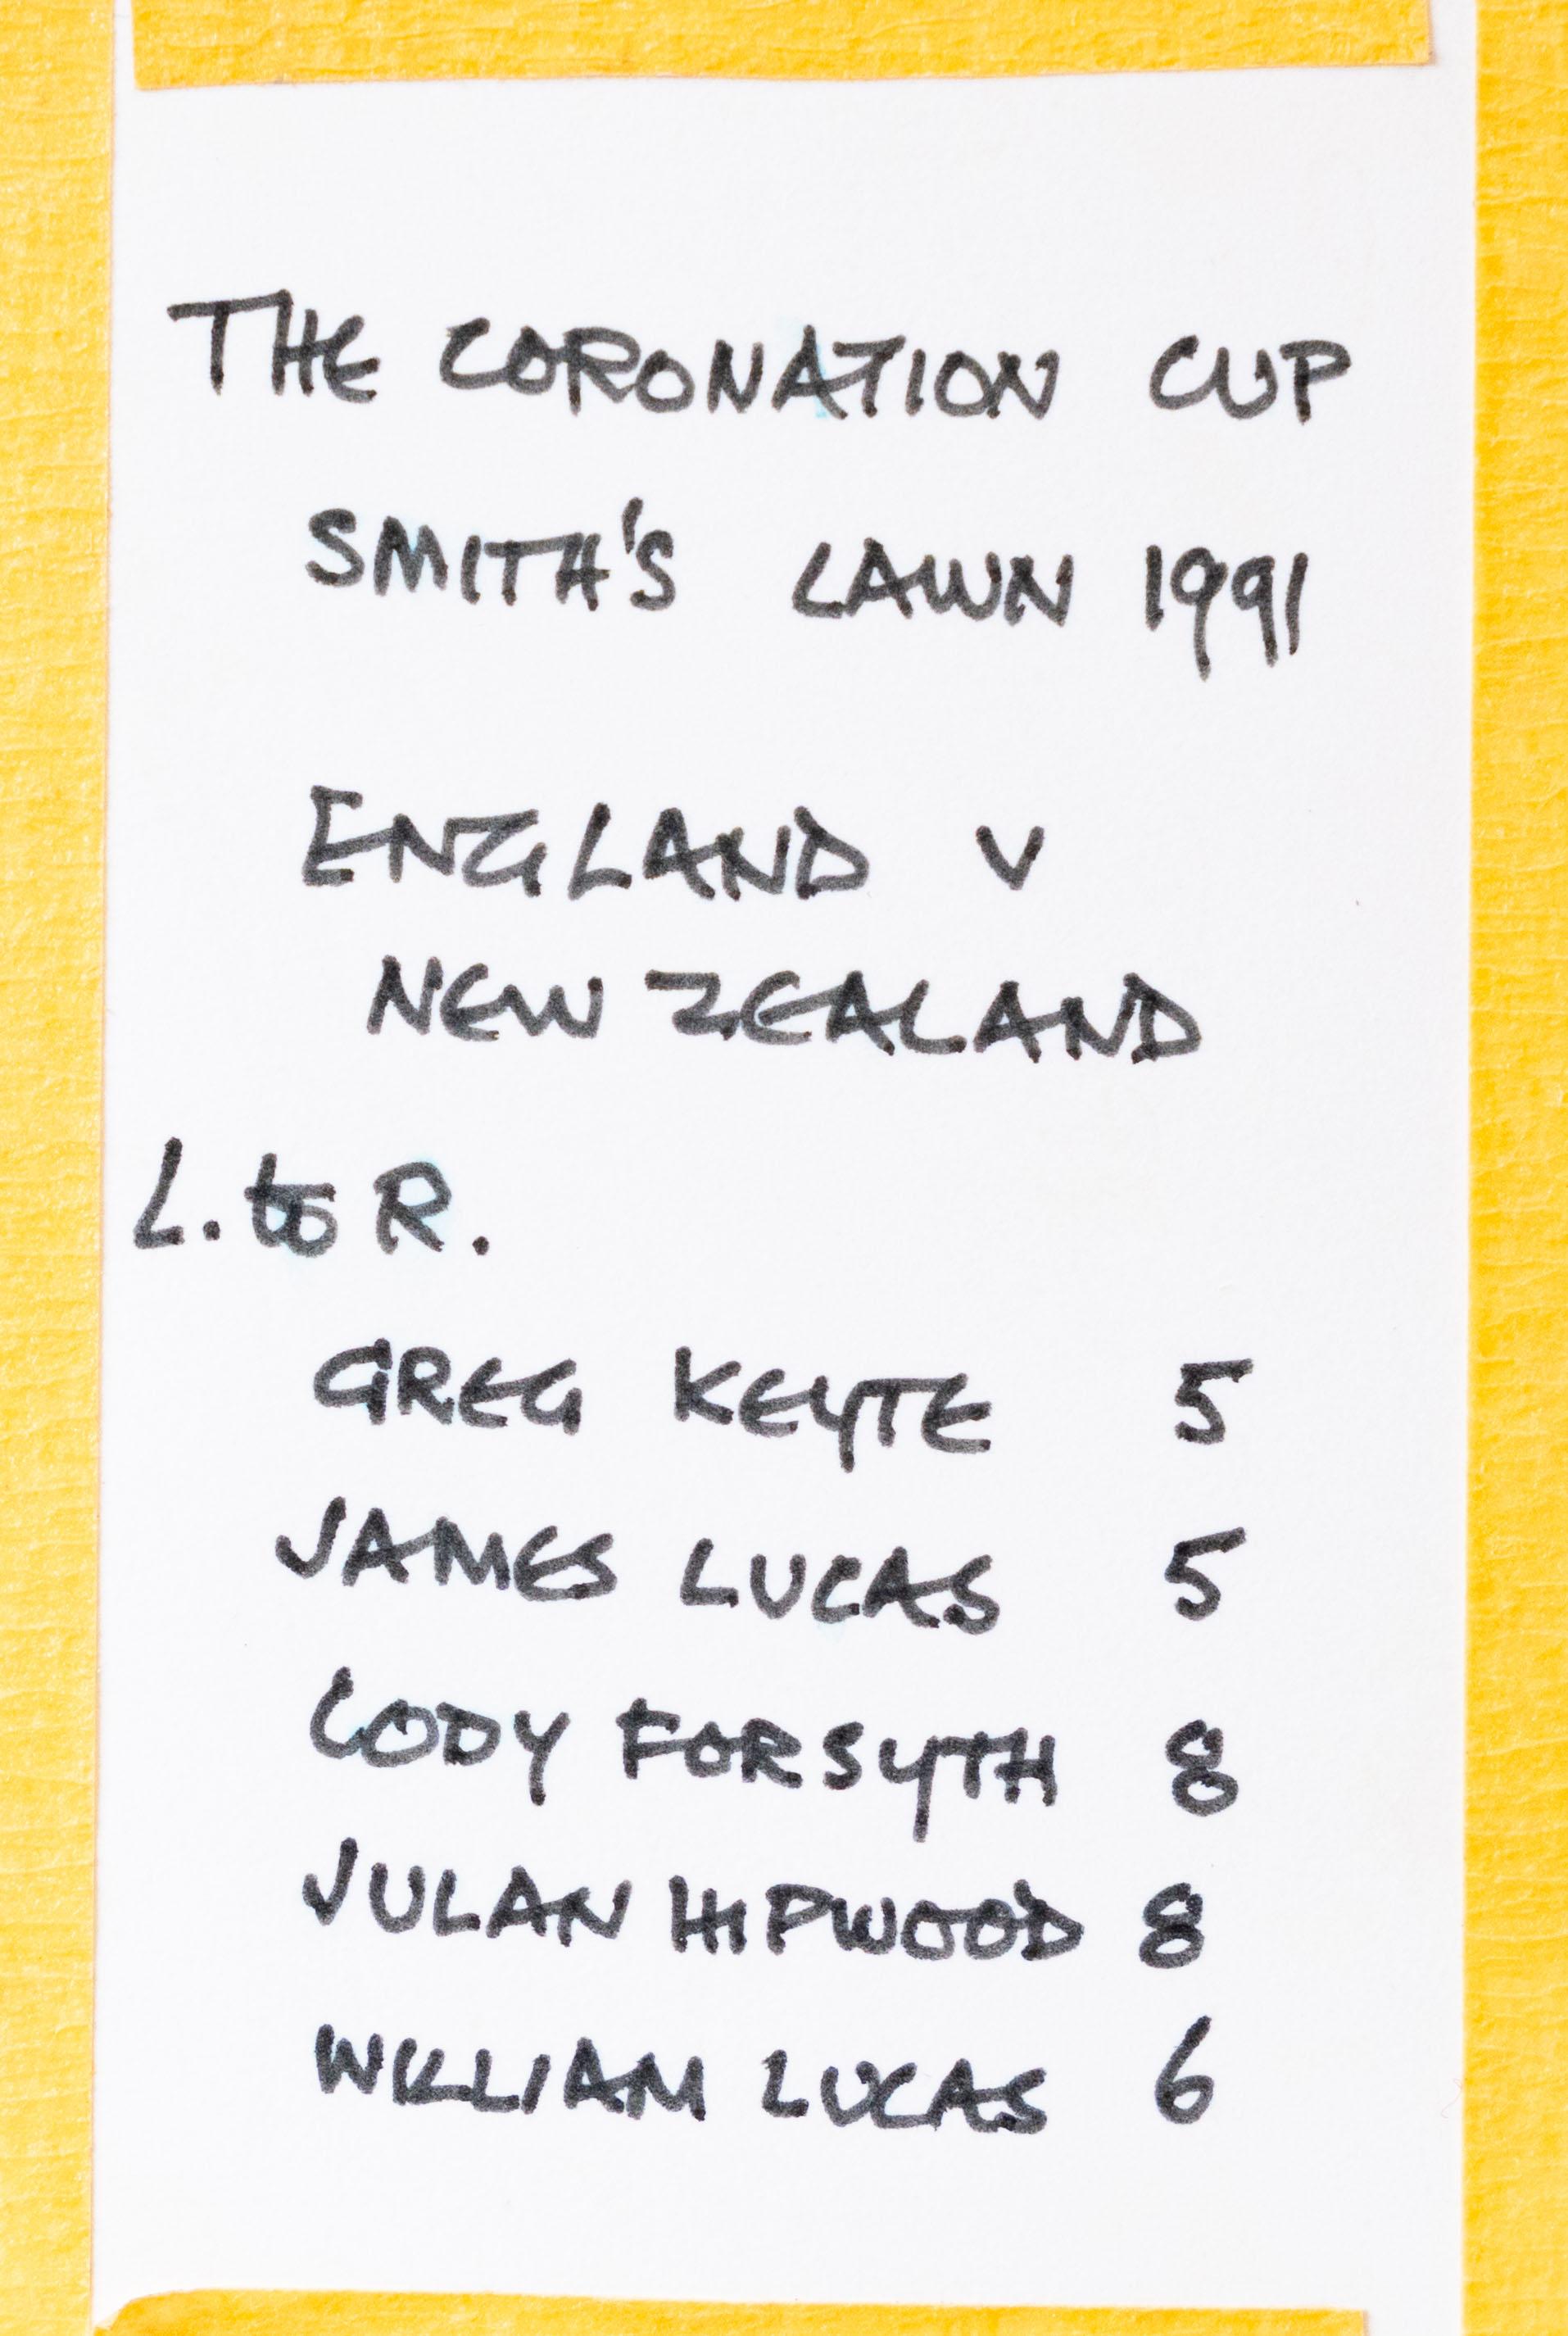 THE CORONATION CUP
SMITH'S LAWN 1991
ENGLAND V
NEW ZEALAND
L. to R.
GREG KEYTE 5
JAMES LUCAS 5
CODY FORSYTH 8
JULAN HIPWOOD 8
WILLIAM LUCAS 6